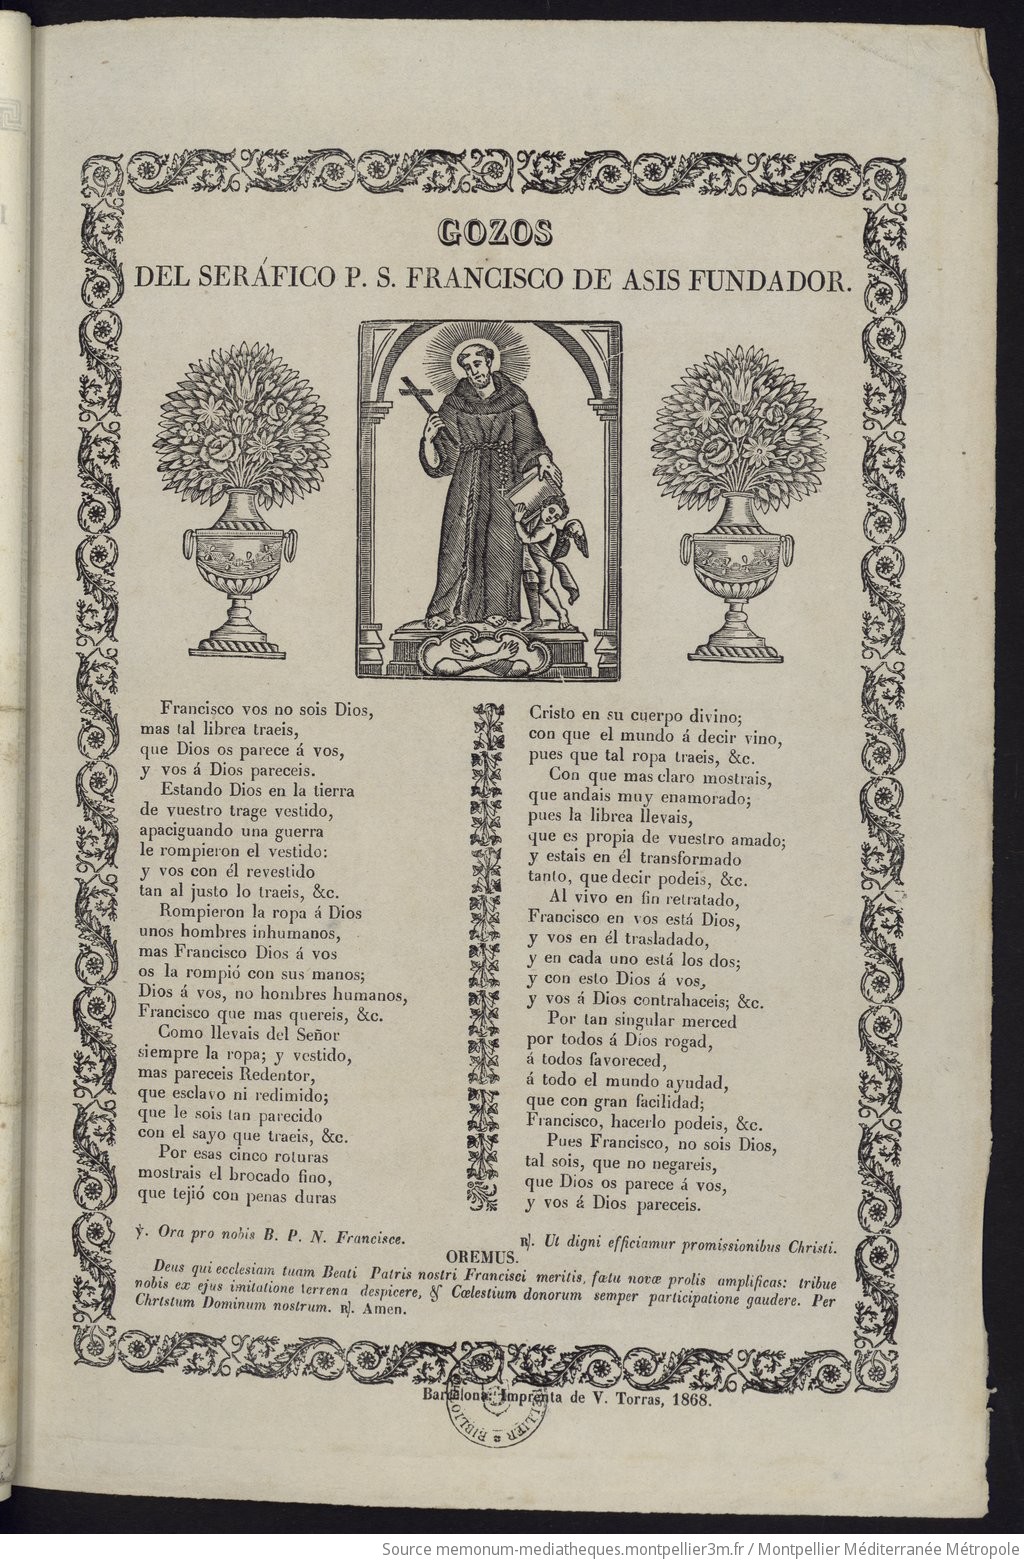 GOZOS
DEL SERÁFICO P. S. FRANCISCO DE ASIS FUNDADOR.
Francisco vos no sois Dios,
mas tal librea traeis,
que Dios os parece á vos,
y vos á Dios pareceis.
Estando Dios en la tierra
de vuestro trage vestido,
apaciguando una guerra
le rompieron el vestido:
y vos con él revestido
tan al justo lo traeis, &c.
Rompieron la ropa á Dios
unos hombres inhumanos,
mas Francisco Dios á vos
os la rompió con sus manos;
Dios á vos, no hombres humanos,
Francisco que mas quereis, &c.
Como llevais del Señor
siempre la ropa; y vestido,
mas pareceis Redentor,
que esclavo ni redimido;
que le sois tan parecido
con el sayo que traeis, &c.
Por esas cinco roturas
mostrais el brocado fino,
que tejió con penas duras
Cristo en su cuerpo divino;
con que el mundo á decir vino,
pues que tal ropa traeis, &c.
Con que mas claro mostrais,
que andais muy enamorado;
pues la librea llevais,
que es propia de vuestro amado;
y estais en él transformado
tanto, que decir podeis, &c.
Al vivo en fin retratado,
Francisco en vos está Dios,
y vos en él trasladado,
y en cada uno está los dos;
y con esto Dios á vos,
y vos á Dios contrahaceis; &c.
Por tan singular merced
por todos á Dios rogad,
á todos favoreced,
á todo el mundo ayudad,
que con gran facilidad;
Francisco, hacerlo podeis, &c.
Pues Francisco, no sois Dios,
tal sois, que no negareis,
que Dios os parece á vos,
y vos á Dios pareceis.
℣. Ora pro nobis B. P. N. Francisce.
℟. Ut digni efficiamur promissionibus Christi.
OREMUS.
Deus qui ecclesiam tuam Beati Patris nostri Francisci meritis, fœtu novæ prolis amplificas: tribue
nobis ex ejus imitatione terrena despicere, & Cœlestium donorum semper participatione gaudere. Per
Chrtstum Dominum nostrum. ℟. Amen.
Barcelona: Imprenta de V. Torras, 1868.
Source memonum-mediatheques.montpellier3m.fr / Montpellier Méditerranée Métropole